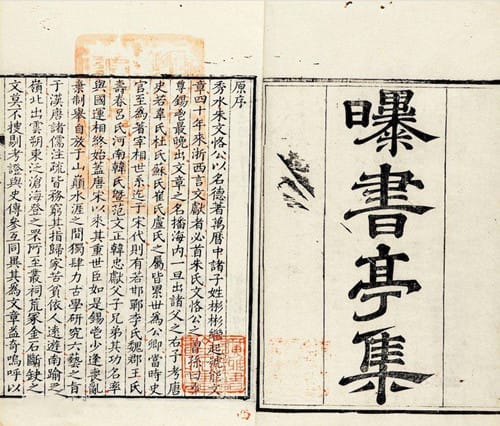 曝書亭集
原序
秀水朱文恪公以名德著萬曆中諸子姓彬彬繼起號能文
章四十年來浙西言文獻者必首朱氏文恪公之曾孫曰彝
尊錫鬯最晚出文章之名播海內一旦出諸父之右予考唐
史若韋氏杜氏蘇氏崔氏盧氏之屬皆累世為公卿當時史
官至為著宰相世系迄于宋代則有若邯鄲李氏魏郡王氏
壽春呂氏河南韓氏暨范文正韓忠獻父子兄弟其功名率
與國運相終始蓋唐宋以來其重世臣如是錫鬯少逢喪亂
棄制舉自放于山巔水涯之間獨肆力古學研究六藝之旨
于漢唐諸儒注疏皆務窮其指歸家苦貧依人遠遊南踰
嶺北出雲朔東泛滄海登之罘所至叢祠荒冢金石斷缺之
文莫不搜剔考證與史傳參互同異其為文章益奇嗚呼以